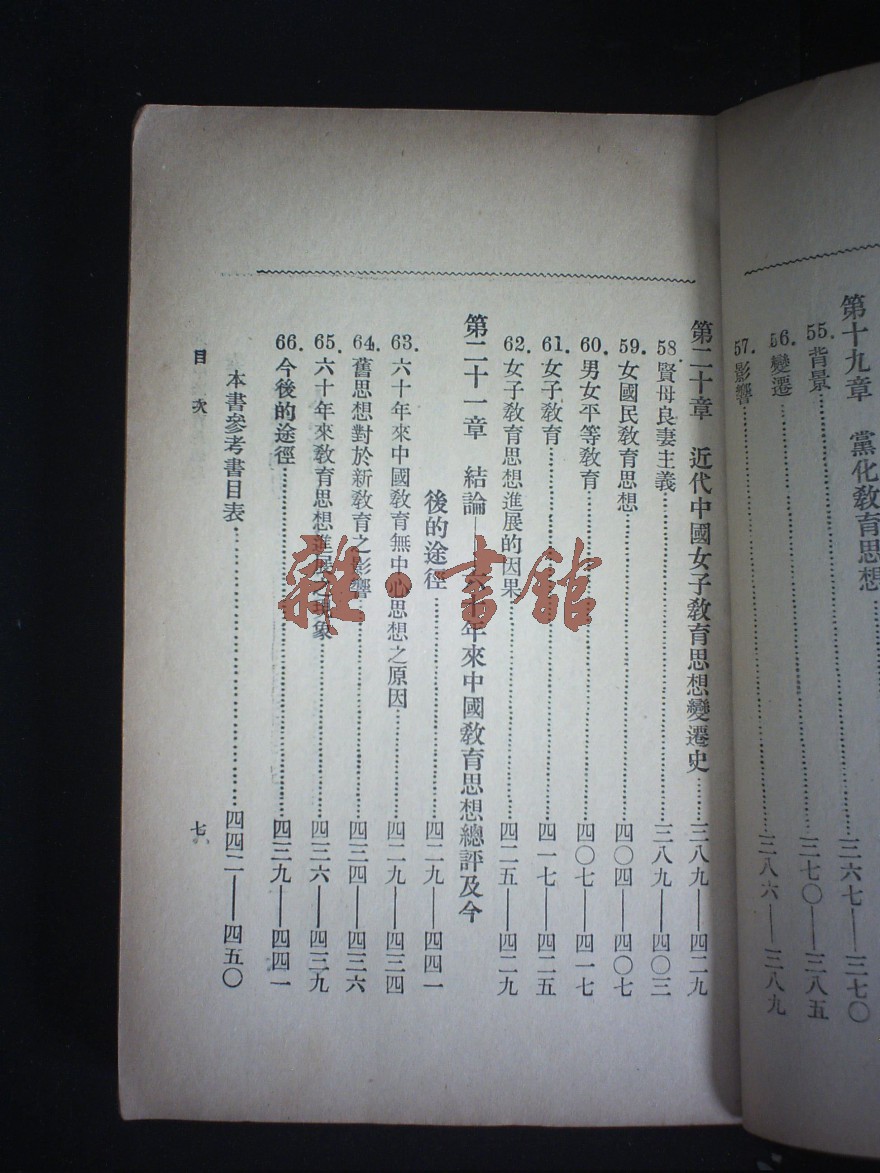 第十九章　黨化教育思想……
55. 背景……三六七——三七〇
56. 變遷……三七〇——三八五
57. 影響……三八六——三八九
第二十章　近代中國女子教育思想變遷史……三八九——四二九
58. 賢母良妻主義……三八九——四〇三
59. 女國民教育思想……四〇四——四〇七
60. 男女平等教育……四〇七——四一七
61. 女子教育……四一七——四二五
62. 女子教育思想進展的因果……四二五——四二九
第二十一章　結論——六十年來中國教育思想總評及今
後的途徑……四二九——四四一
63. 六十年來中國教育無中心思想之原因……四二九——四三四
64. 舊思想對於新教育之影響……四三四——四三六
65. 六十年來教育思想進展之現象……四三六——四三九
66. 今後的途徑……四三九——四四一
本書參考書目表……四四二——四五〇
目次
七
雜·書館